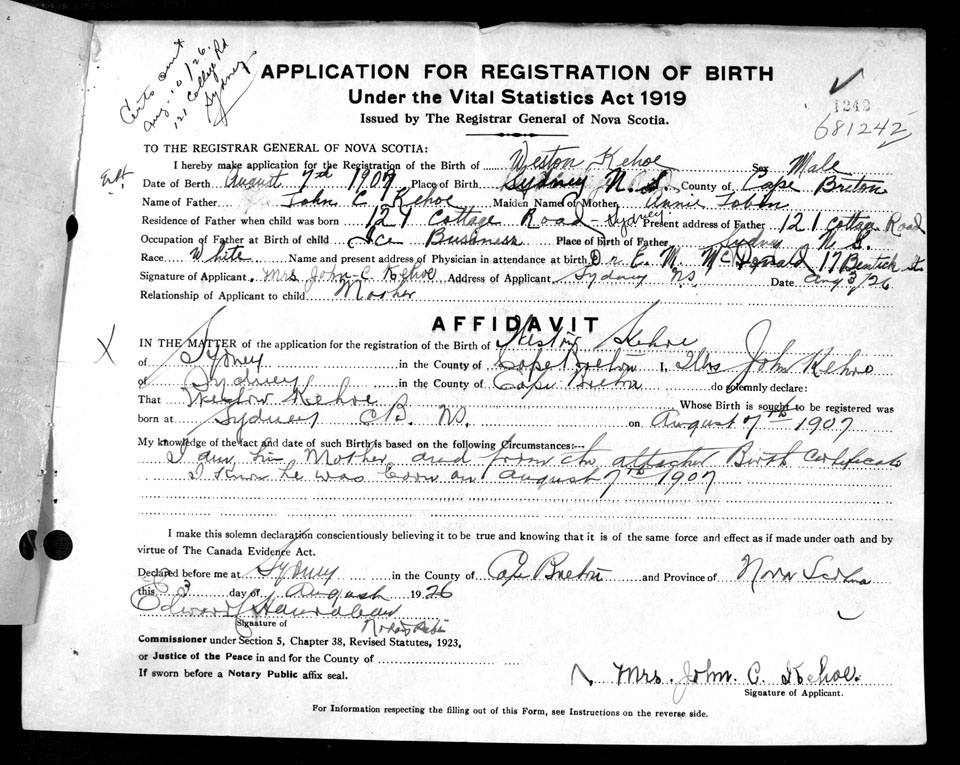 Aug. 10/26.
121 College Rd
Sydney
APPLICATION FOR REGISTRATION OF BIRTH
Under the Vital Statistics Act 1919
Issued by The Registrar General of Nova Scotia.
1242
681242
TO THE REGISTRAR GENERAL OF NOVA SCOTIA:
I hereby make application for the Registration of the Birth of Weston Kehoe Sex Male
Date of Berth August 7th 1907 Place of Birth Sydney N. S. County of Cape Breton
Name of Father John C. Kehoe Maiden Name of Mother Annie Tobin
Residence of Father when child was born 121 Cottage Road - Sydney. Present address of Father 121 Cottage Road
Occupation of Father at Birth of child Ice Business Place of birth of Father Sydney N S.
Race White Name and present address of Physician in attendance at birth Dr. E. M. McDonald 17 Bentick St
Signature of Applicant Mrs John C Kehoe Address of Applicant Sydney NS Date Aug 3/26
Relationship of Applicant to child Mother
AFFIDAVIT
IN THE MATTER of the application for the registration of the Birth of Weston Kehoe
of Sydney in the County of Cape Breton I, Mrs John Kehoe
of Sydney in the County of Cape Breton do solemnly declare:
That Weston Kehoe Whose Birth is sought to be registered was
born at Sydney CB. NS. on August 7th 1907
My knowledge of the fact and date of such Birth is based on the following Circumstances:--
I am his Mother and from the attached Birth Certificate
I know he was born on August 7th 1907
I make this solemn declaration conscientiously believing it to be true and knowing that it is of the same force and effect as if made under oath and by
virtue of The Canada Evidence Act.
Declared before me at Sydney in the County of Cape Breton and Province of Nova Scotia
this 3 day of August 1926
Edward
Signature of
Commissioner under Section 5, Chapter 38, Revised Statutes, 1923,
or Justice of the Peace in and for the County of
If sworn before a Notary Public affix seal.
Mrs. John. C. Kehoe.
Signature of Applicant.
For Information respecting the filling out of this Form, see Instructions on the reverse side.